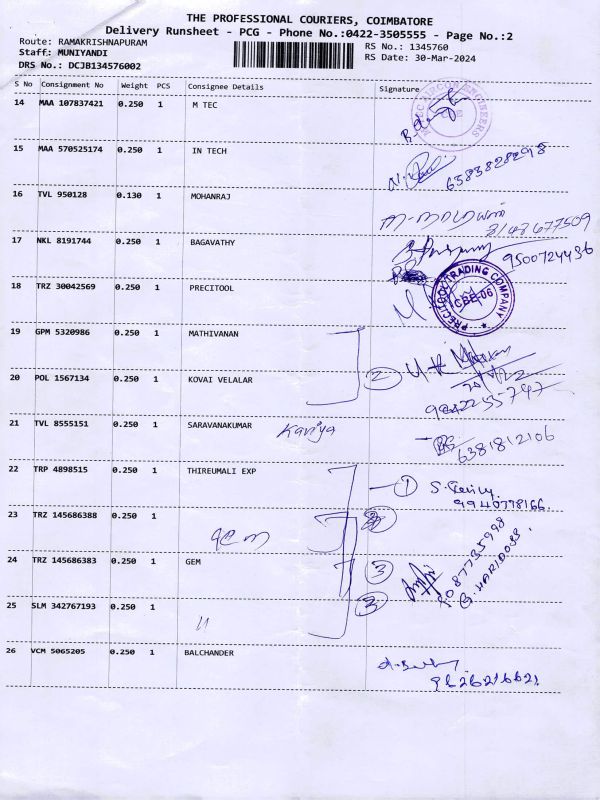 THE PROFESSIONAL COURIERS, COIMBATORE
Delivery Runsheet - PCG - Phone No.:0422-3505555 - Page No.:2
Route: RAMAKRISHNAPURAM
RS No.: 1345760
Staff: MUNIYANDI
RS Date: 30-Mar-2024
DRS No.: DCJB134576002
S No Consignment No Weight PCS Consignee Details Signature
14 MAA 107837421 0.250 1 M TEC
15 MAA 570525174 0.250 1 IN TECH
6383828298
16 TVL 950128 0.130 1 MOHANRAJ
8148677509
17 NKL 8191744 0.250 1 BAGAVATHY
9500724436
18 TRZ 30042569 0.250 1 PRECITOOL
PRECITOOL TRADING COMPANY
CBE-06
19 GPM 5320986 0.250 1 MATHIVANAN
20 POL 1567134 0.250 1 KOVAI VELALAR 2
21 TVL 8555151 0.250 1 SARAVANAKUMAR Kaviya
6381812106
22 TRP 4898515 0.250 1 THIREUMALI EXP
1
9940778166
23 TRZ 145686388 0.250 1
24 TRZ 145686383 0.250 1 GEM 3
8087735998
G. HARIDOSS.
25 SLM 342767193 0.250 1 3
26 VCM 5065205 0.250 1 BALCHANDER